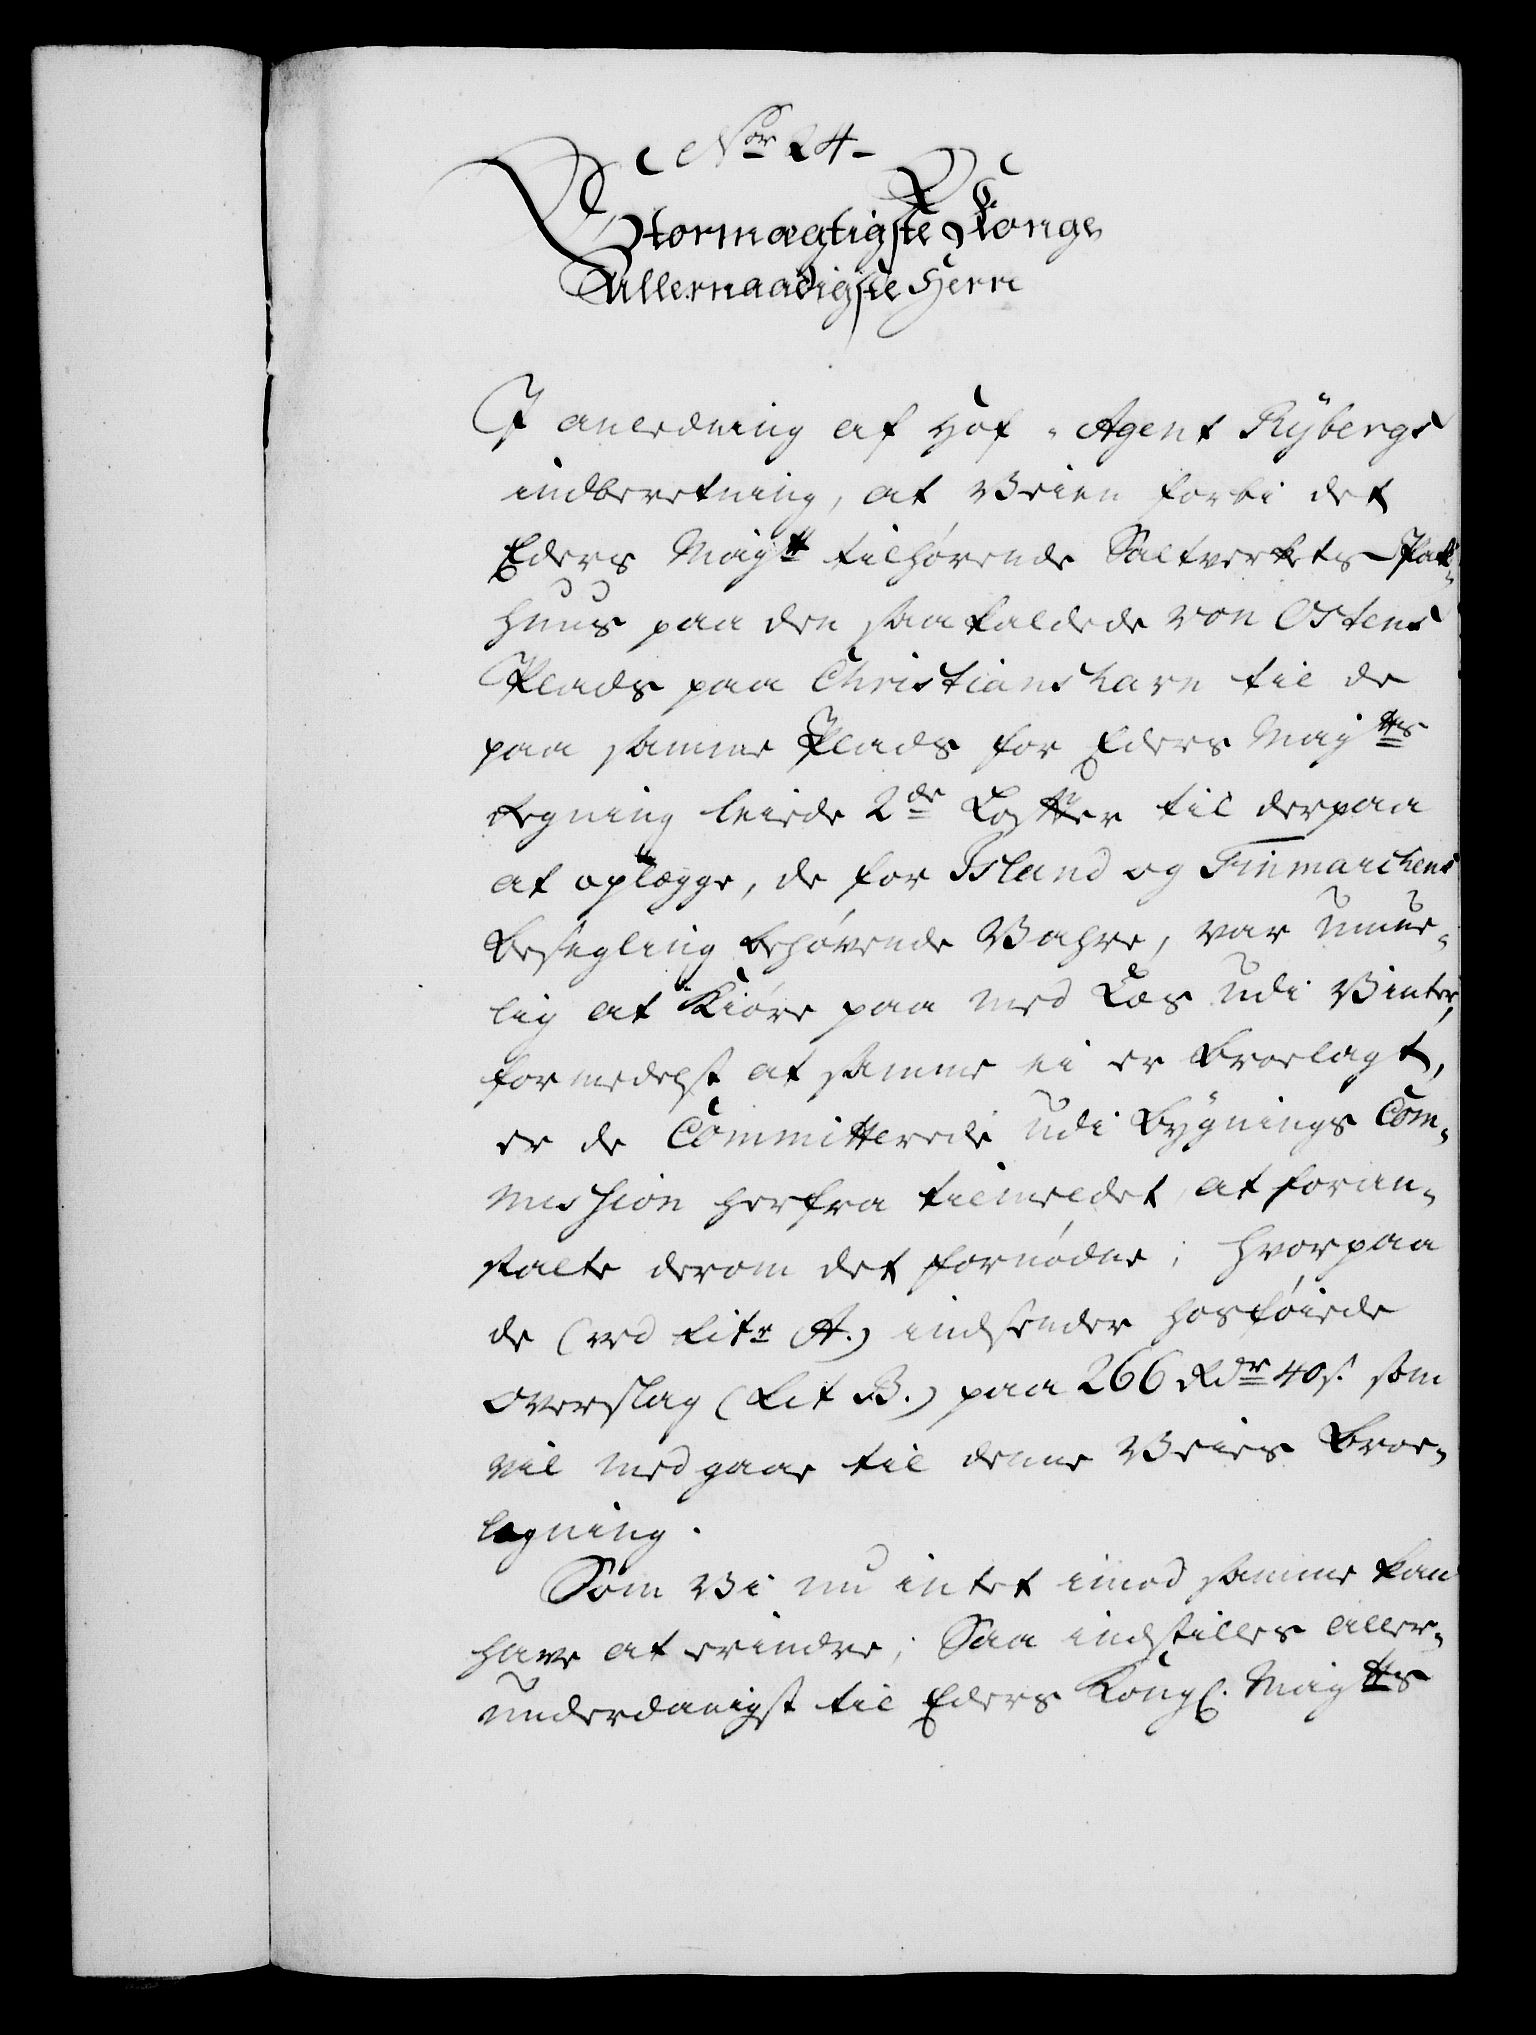 Nor 24-
Stormægtigste Konge
Allernaadigste Herre
I anledning af Hof-Agent Rÿbergs
indberetning, at Veien forbi det
Eders Mayst tilhørende Saltverkets Pak-
huus paa den saakaldede von Ostens
Plads paa Christianshavn til de
paa samme Plads for Eders Mayts
regning leiede 2de Lofter til derpaa
at oplægge, de for Island og Finmarckens
Besegling behøvende Vahre, var umue-
lig at kiøre paa med Læs udi Vinter,
formedelst at samme ei er broelagt,
er de Committerede udi Bygnings Com-
mission herfra tilmeldet at foran-
stalte derom det fornødne; hvorpaa
de (ved Litr A.) indsender hosføiede
overslag (Lit B.) paa 266 Rdr 40 s. som
vil medgaae til denne Veies Broe-
legning.
Som Vi nu intet imod samme kan
have at erindre; Saa indstilles aller-
underdanigst til Eders Kongl. Mayts